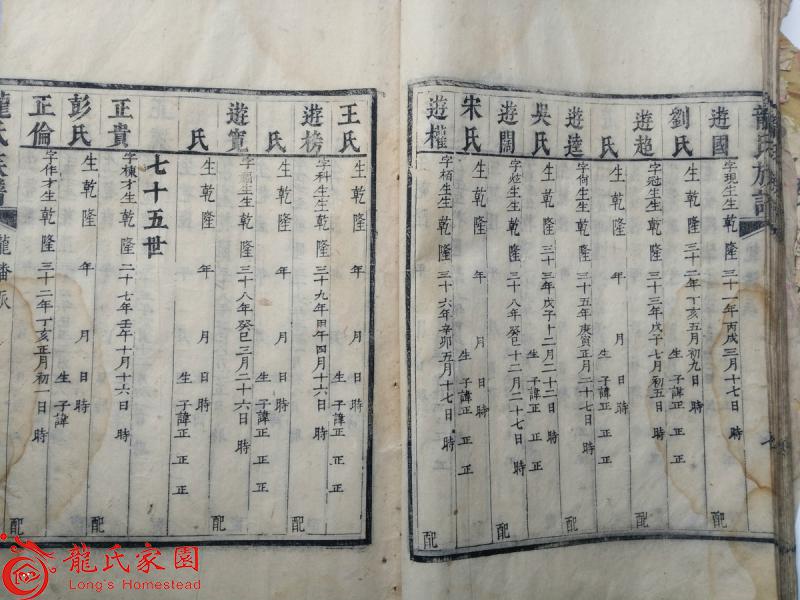 龍氏族譜
遊國 字現生生乾隆三十一年丙戌三月十七日 時 配
劉氏 生乾隆三十二年丁亥五月初九日 時 生子諱正 正 正
遊趙 字冠生生乾隆三十三年戊子七月初五日 時 配
氏 生乾隆 年 月 日 時 生子諱正 正 正
遊達 字何生生乾隆三十五年庚寅正月二十七日 時 配
吳氏 生乾隆三十三年戊子十二月二十二日 時 生子諱正 正 正
遊闊 字 生生乾隆三十八年癸巳十二月二十七日 時 配
宋氏 生乾隆 年 月 日 時 生子諱正 正 正
遊權 字栢生生乾隆三十六年辛卯五月十七日 時 配
王氏 生乾隆 年 月 日 時 生子諱正 正 正
遊榜 字科生生乾隆三十九年甲午四月十六日 時 配
氏 生乾隆 年 月 日 時 生子諱正 正 正
遊寬 字 生生乾隆三十八年癸巳三月二十六日 時 配
氏 生乾隆 年 月 日 時 生子諱正 正 正
七十五世
正貴 字棟才生乾隆二十七年壬午十月十六日 時 配
彭氏 生乾隆 年 月 日 時 生子諱
正倫 字作才生乾隆三十二年丁亥正月初一日 時 配
龍氏族譜 龍潘派
龍氏家園
Long's Homestead